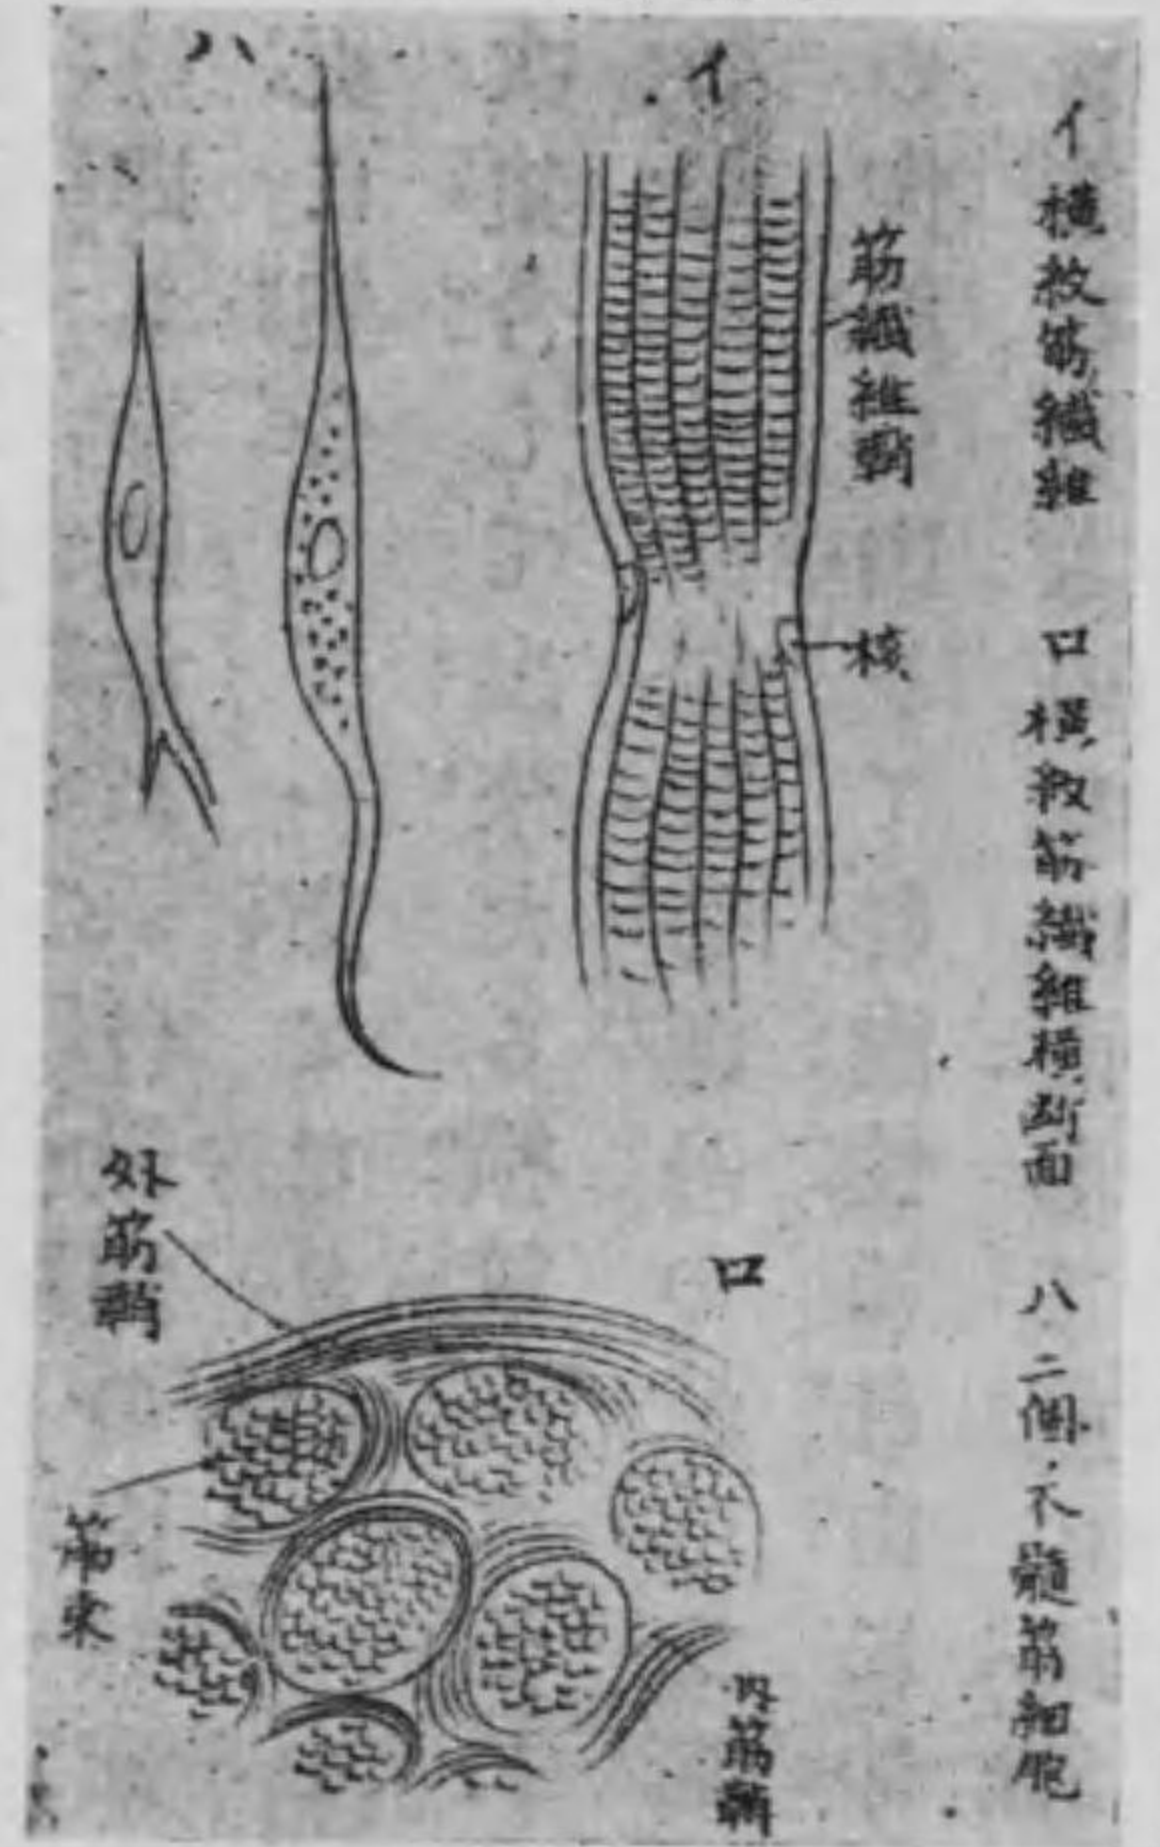 イ 横紋筋纖維 ロ 横紋筋纖維横断面 ハ 二個ノ不髓筋細胞
イ
筋纖維鞘
核
ハ
ロ
外筋鞘
筋束
内筋鞘